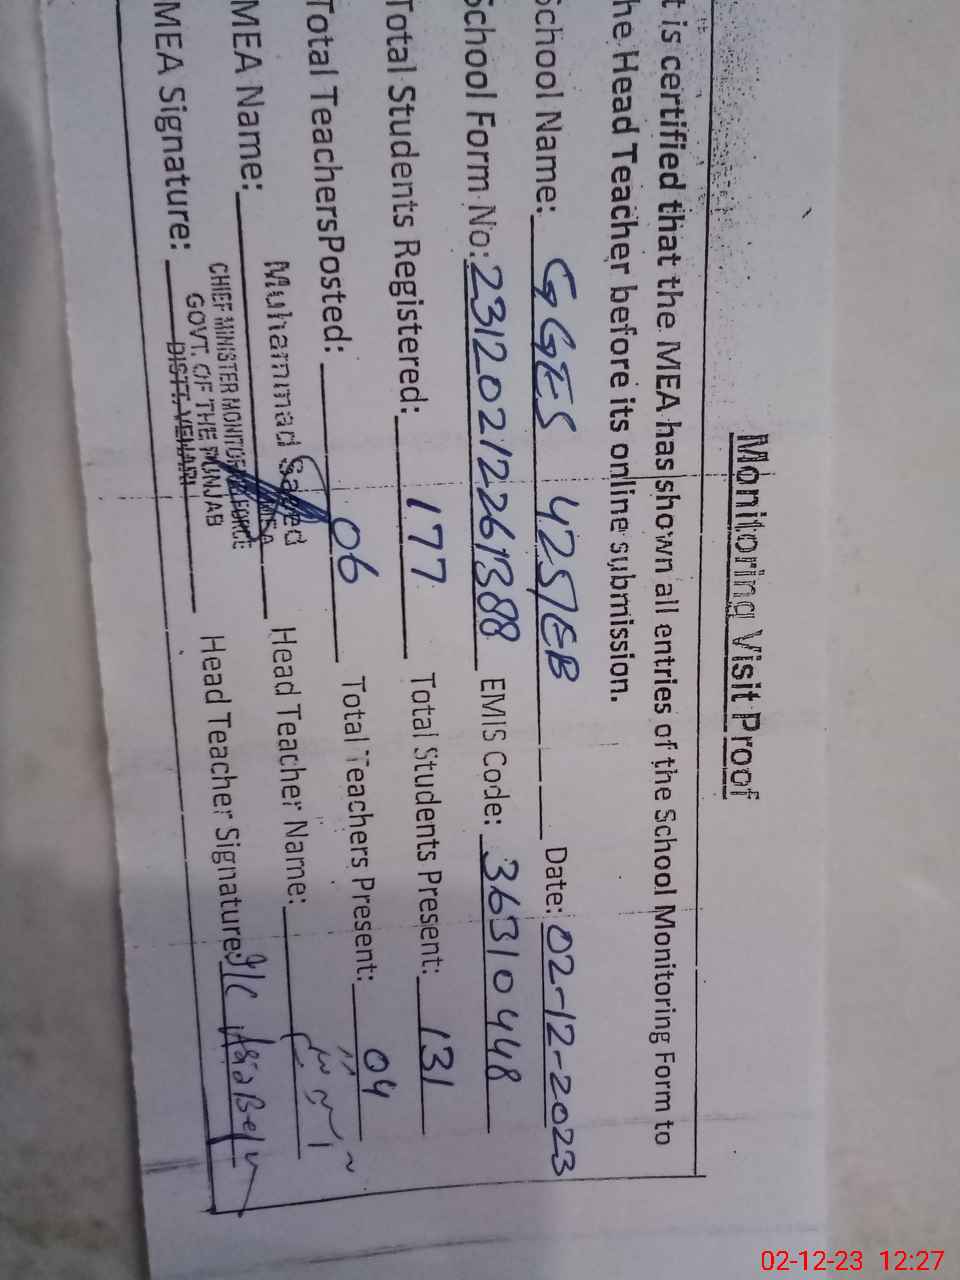 Monitoring Visit Proof
t is certified that the MEA has shown all entries of the School Monitoring Form to
he Head Teacher before its online submission.
School Name: GGES 425/EB Date: 02-12-2023
School Form No: 23120212261388 EMIS Code: 36310448
Total Students Registered: 177 Total Students Present: 131
Total TeachersPosted: 06 Total Teachers Present: 04
MEA Name: Muhammad Saeed Head Teacher Name:
MEA
CHIEF MINISTER MONITORING FORCE
GOVT. OF THE PUNJAB
DISTT. VEHARI
MEA Signature: Head Teacher Signature: I/C
02-12-23 12:27